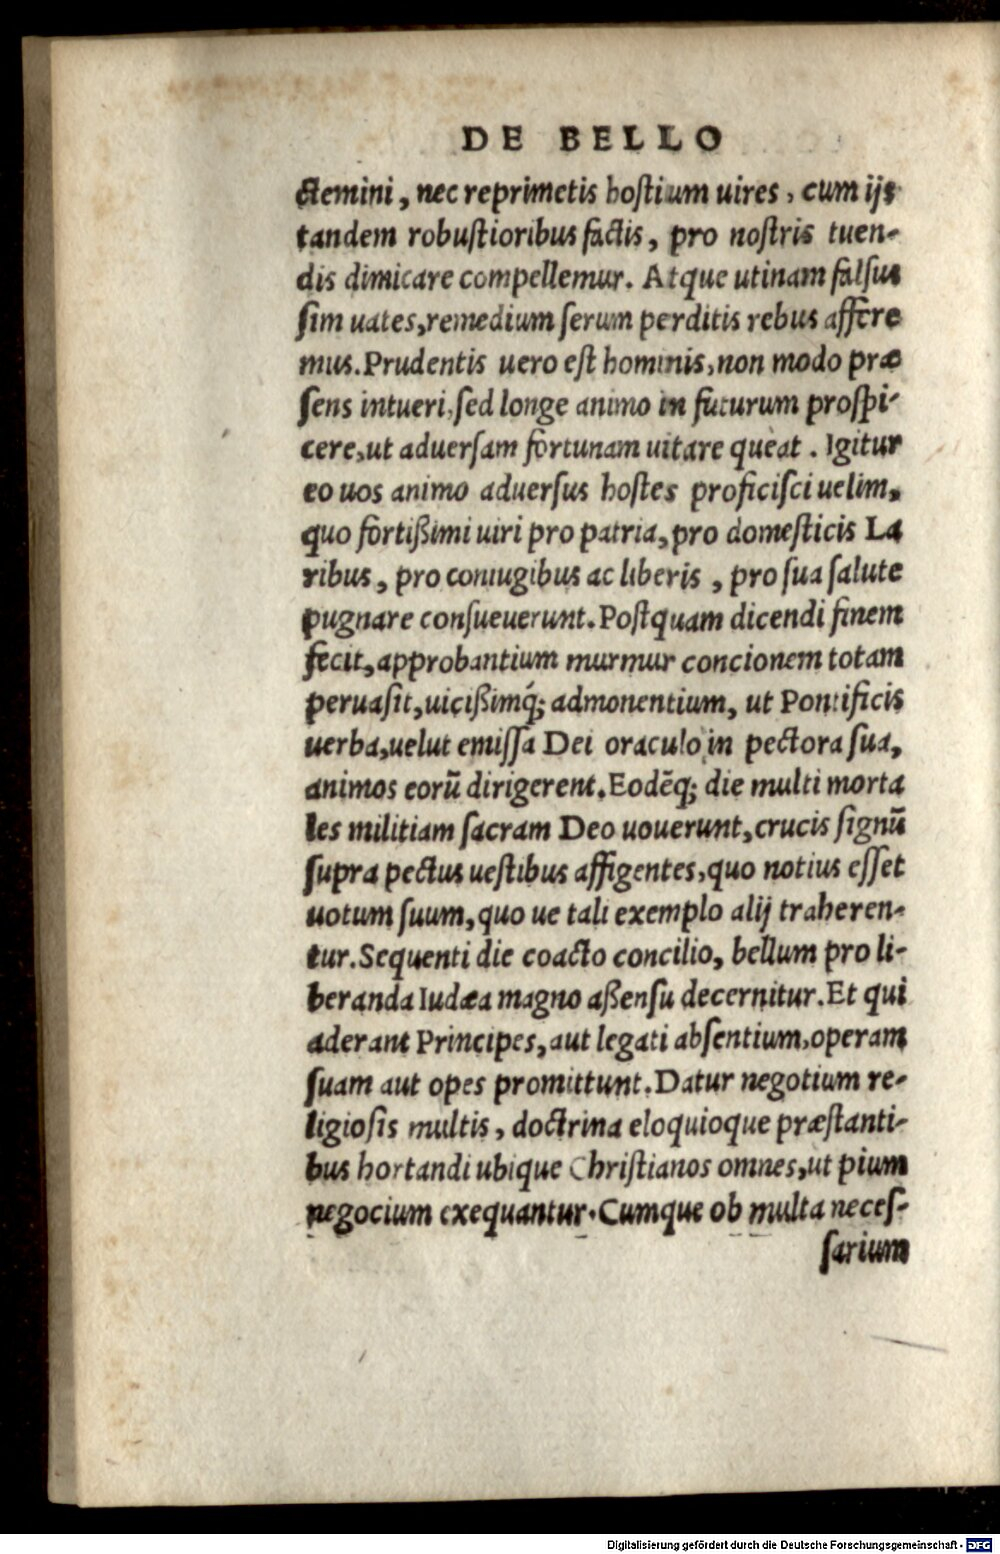 DE BELLO
ctemini, nec reprimetis hostium uires, cum ijs
tandem robustioribus factis, pro nostris tuen-
dis dimicare compellemur. Atque utinam falsus
sim uates, remedium serum perditis rebus affere
mus. Prudentis uero est hominis, non modo præ
sens intueri, sed longe animo in futurum prospi-
cere, ut aduersam fortunam uitare queat. Igitur
eo uos animo aduersus hostes proficisci uelim,
quo fortißimi uiri pro patria, pro domesticis La
ribus, pro coniugibus ac liberis, pro sua salute
pugnare consueuerunt. Postquam dicendi finem
fecit, approbantium murmur concionem totam
peruasit, uicißimq́; admonentium, ut Pontificis
uerba, uelut emissa Dei oraculo in pectora sua,
animos eorũ dirigerent. Eodẽq; die multi morta
les militiam sacram Deo uouerunt, crucis signũ
supra pectus uestibus affigentes, quo notius esset
uotum suum, quo ue tali exemplo alij traheren-
tur. Sequenti die coacto concilio, bellum pro li-
beranda Iudæa magno aßensu decernitur. Et qui
aderant Principes, aut legati absentium, operam
suam aut opes promittunt. Datur negotium re-
ligiosis multis, doctrina eloquioque præstanti-
bus hortandi ubique Christianos omnes, ut pium
negocium exequantur. Cumque ob multa neces-
sarium
Digitalisierung gefördert durch die Deutsche Forschungsgemeinschaft - DFG